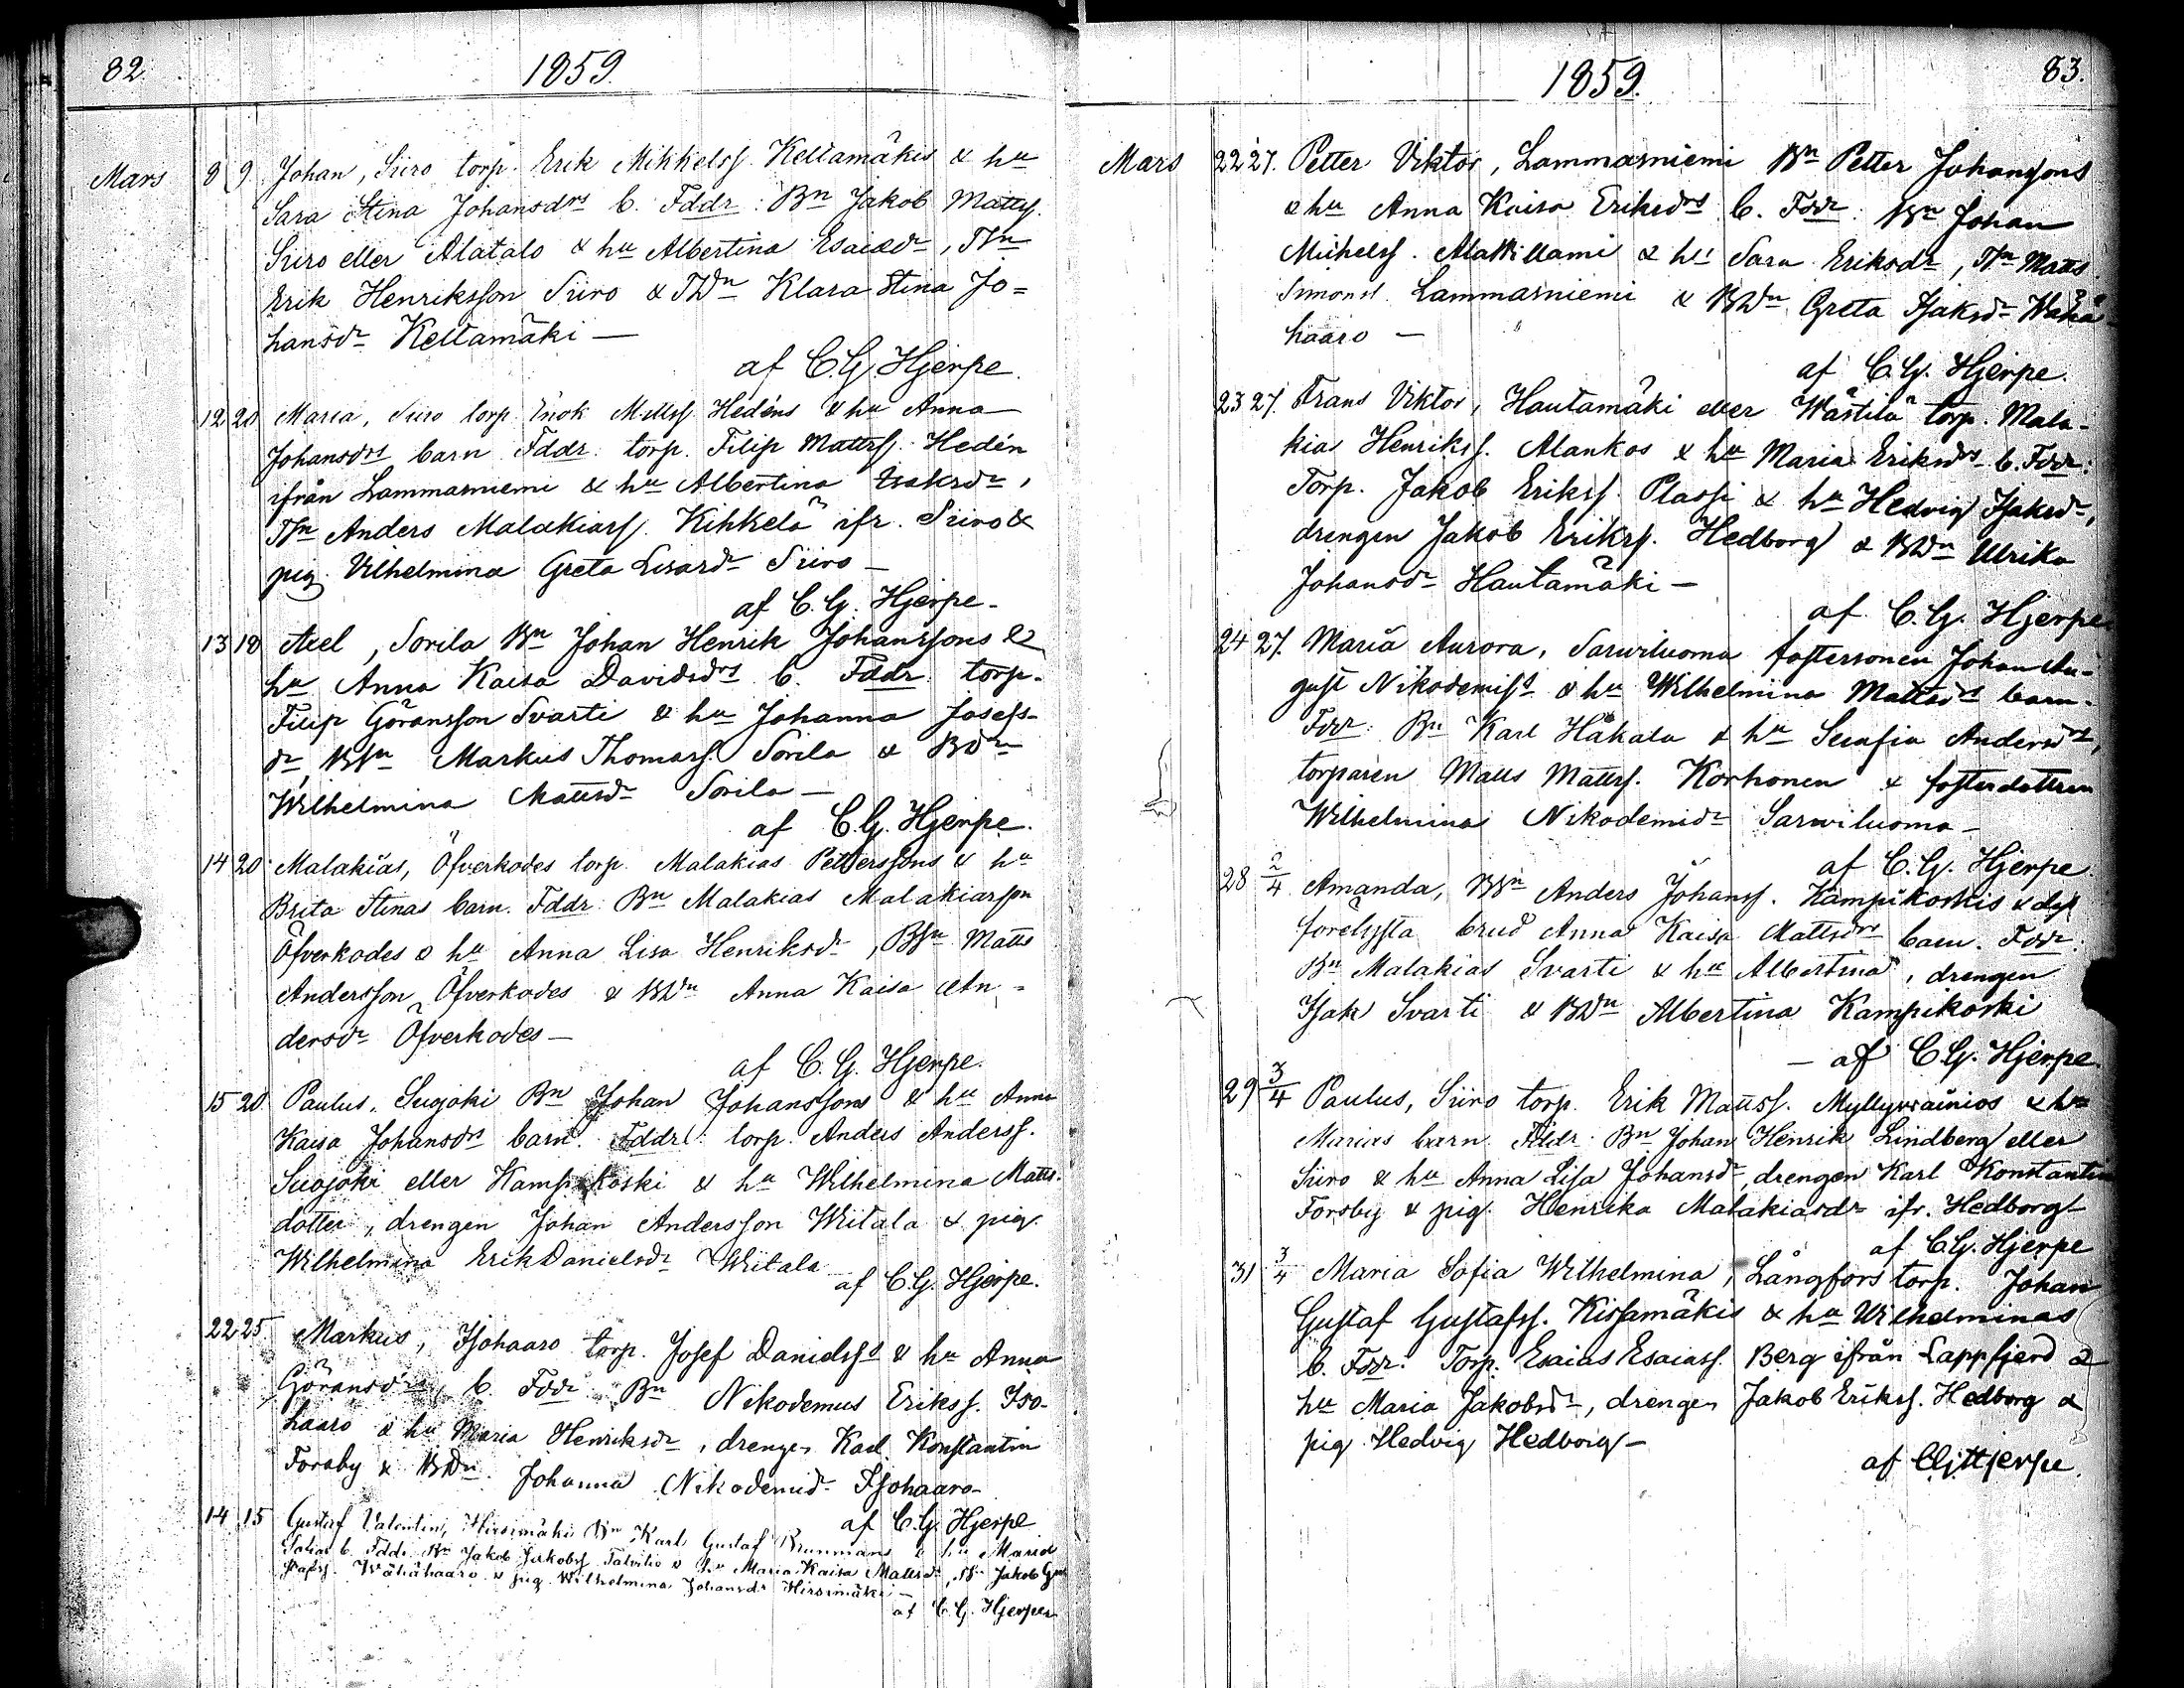 82.
1859.
Mars 8 9 Johan, Siiro torp. Erik Mikkelss. Keltamäkis & hu
Sara Stina Johansdrs b. Fddr: Bn Jakob Matts.
Siiro eller Alatalo & hu Albertina Esaiædr,
Erik Henriksson Siiro & TDn Klara Stina Jo=
hansdr Keltamäki —
af C.G. Hjerpe.
12 20 Maria, Siiro torp. Enok Mattss. Hedéns & hu Anna
Johansdrs barn Fddr: torp. Filip Mattss. Hedén
ifrån Lammasniemi & hu Albertina Isaksdr,
Anders Malakiass. Kihkelä ifr. Siiro &
pig. Vilhelmina Greta Lisasdr Siiro —
af C.G. Hjerpe.
13 18 Axel, Sorila Bn Johan Henrik Johanssons &
hu Anna Kaisa Davidsdrs b. Fddr torp.
Filip Göransson Svarti & hu Johanna Josefs-
dr, BSn Markus Thomass. Sorila & BDn
Wilhelmina Mattsdr Sorila —
af C.G. Hjerpe.
14 20 Malakias, Öfverkodes torp. Malakias Petterssons & hu
Brita Stinas barn. Fddr: Bn Malakias Malakiasson
Öfverkodes & hu Anna Lisa Henriksdr, BSn Matts
Andersson Öfverkodes & BDn Anna Kaisa An=
dersdr Öfverkodes —
af C.G. Hjerpe.
15 20 Paulus, Suojoki Bn Johan Johanssons & hu Anna
Kaisa Johansdrs barn. Fddr: torp. Anders Anderss.
Suojoki eller Kampikoski & hu Wilhelmina Matts-
dotter, drengen Johan Andersson Wiitala & pig.
Wilhelmina Erik Danielsdr Wiitala
af C.G. Hjerpe.
22 25 Markus, Isohaaro torp. Josef Danielss & hu Anna
Göransdrs, b. Fddr Bn Nikodemus Erikss. Iso-
haaro & hu Maria Henriksdr, drengen Karl Konstantin
Forsby & BDn Johanna Nikodemidr Isohaaro —
af C.G. Hjerpe
14 15 Gustaf Valentin, Hirsimäki Bn Karl Gustaf Brunmans & hu Maria
Sofias b. Fddr. Bn Jakob Jakobss Talvitie & hu Maria Kaisa Mattsdr, Jakob Gu
stafss. Wähähaaro & pig. Wilhelmina Johansdr Hirsimäki —
af C.G. Hjerpe
83.
1859.
Mars 22 27. Petter Viktor, Lammasniemi Bn Petter Johanssons
& hu Anna Kaisa Eriksdrs b. Fddr: Bn Johan
Michelss. & hu Sara Eriksdr, Matts
Simonss. Lammasniemi & BDn Greta Isaksdr Wähä-
haaro —
af C.G. Hjerpe.
23 27. Frans Viktor, Hautamäki eller Wästilä torp. Mala-
kias Henrikss. Alankos & hu Maria Eriksdrs b. Fddr:
Torp. Jakob Erikss. Plassi & hu Hedvig Isaksdr,
drengen Jakob Erikss. Hedborg & BDn Ulrika
Johansdr Hautamäki —
af C.G. Hjerpe
24 27. Maria Aurora, Sarviluoma fostersonen Johan Au-
gust Nikodemiss & hu Wilhelmina Mattsdrs barn.
Fddr: Bn Karl Hakala & hu Serafia Andersdr,
torparen Matts Mattss. Korhonen & fosterdottren
Wilhelmina Nikodemidr Sarviluoma —
af C.G. Hjerpe
28 2/4 Amanda, BSn Anders Johanss. Kampikoskis &
förelysta brud Anna Kaisa Mattsdrs barn. Fddr.
Bn Malakias Svarti & hu Albertina, drengen
Isak Svarti & BDn Albertina Kampikoski
— af C.G. Hjerpe.
29 3/4 Paulus, Siiro torp. Erik Mattss. Myllyväinios & hu
Marias barn Fddr: Bn Johan Henrik Lindberg eller
Siiro & hu Anna Lisa Johansdr, drengen Karl Konstantin
Forsby & pig. Henrika Malakiasdr ifr. Hedborg
af C.G. Hjerpe
31 3/4 Maria Sofia Wilhelmina, Långfors torp. Johan
Gustaf Gustafss. Kissamäkis & hu Wilhelminas
b. Fddr: Torp. Esaias Esaiass. Berg ifrån Lappfjerd &
hu Maria Jakobsdr, drengen Jakob Erikss. Hedborg &
pig. Hedvig Hedborg —
af CG Hjerpe.